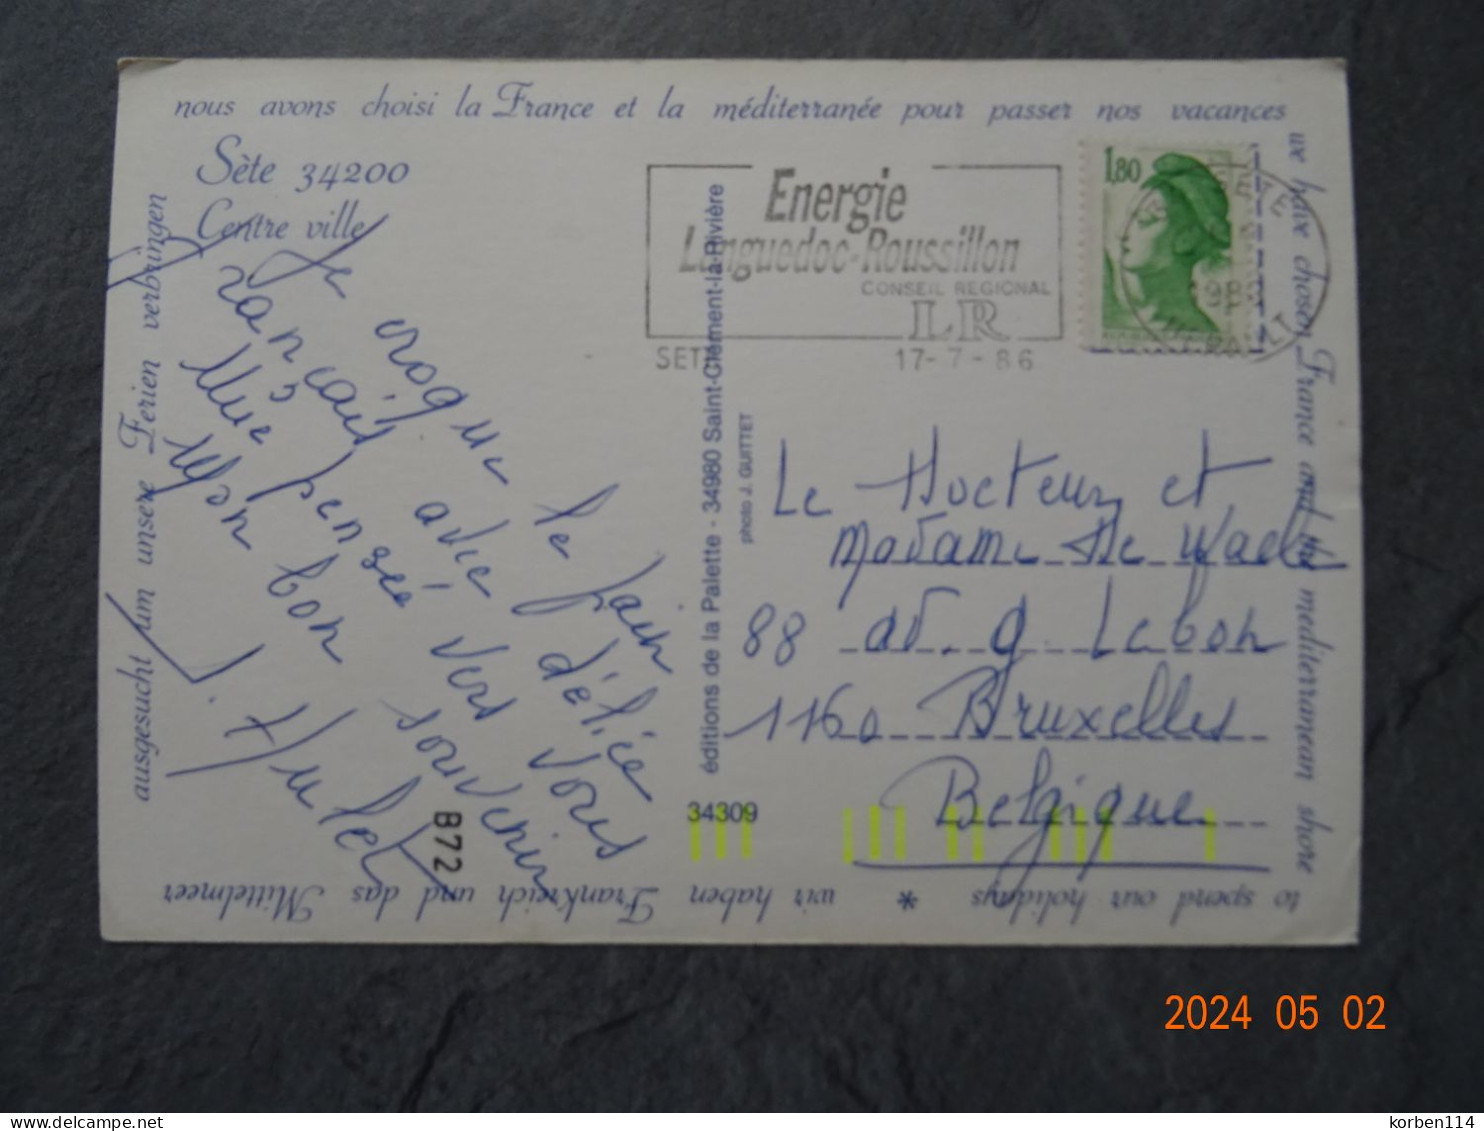 nous avons choisi la France et la méditerranée pour passer nos vacances
we have chosen France and the mediterranean shore
to spend our holidays * wir haben Frankreich und das Mittelmeer
ausgesucht um unsere Ferien verbringen
Sète 34200
Centre ville
Je croque le pain
français avec délice
Une pensée vers vous
Mon bon souvenir
Energie
Languedoc-Roussillon
CONSEIL REGIONAL
LR
SETE 17-7-86
1,80
éditions de la Palette - 34980 Saint-Clément-la-Rivière
photo J. GUITTET
Le Docteur et
Madame De
88 av. g. Lebon
1160 Bruxelles
Belgique
34309
B72
2024 05 02
korben114